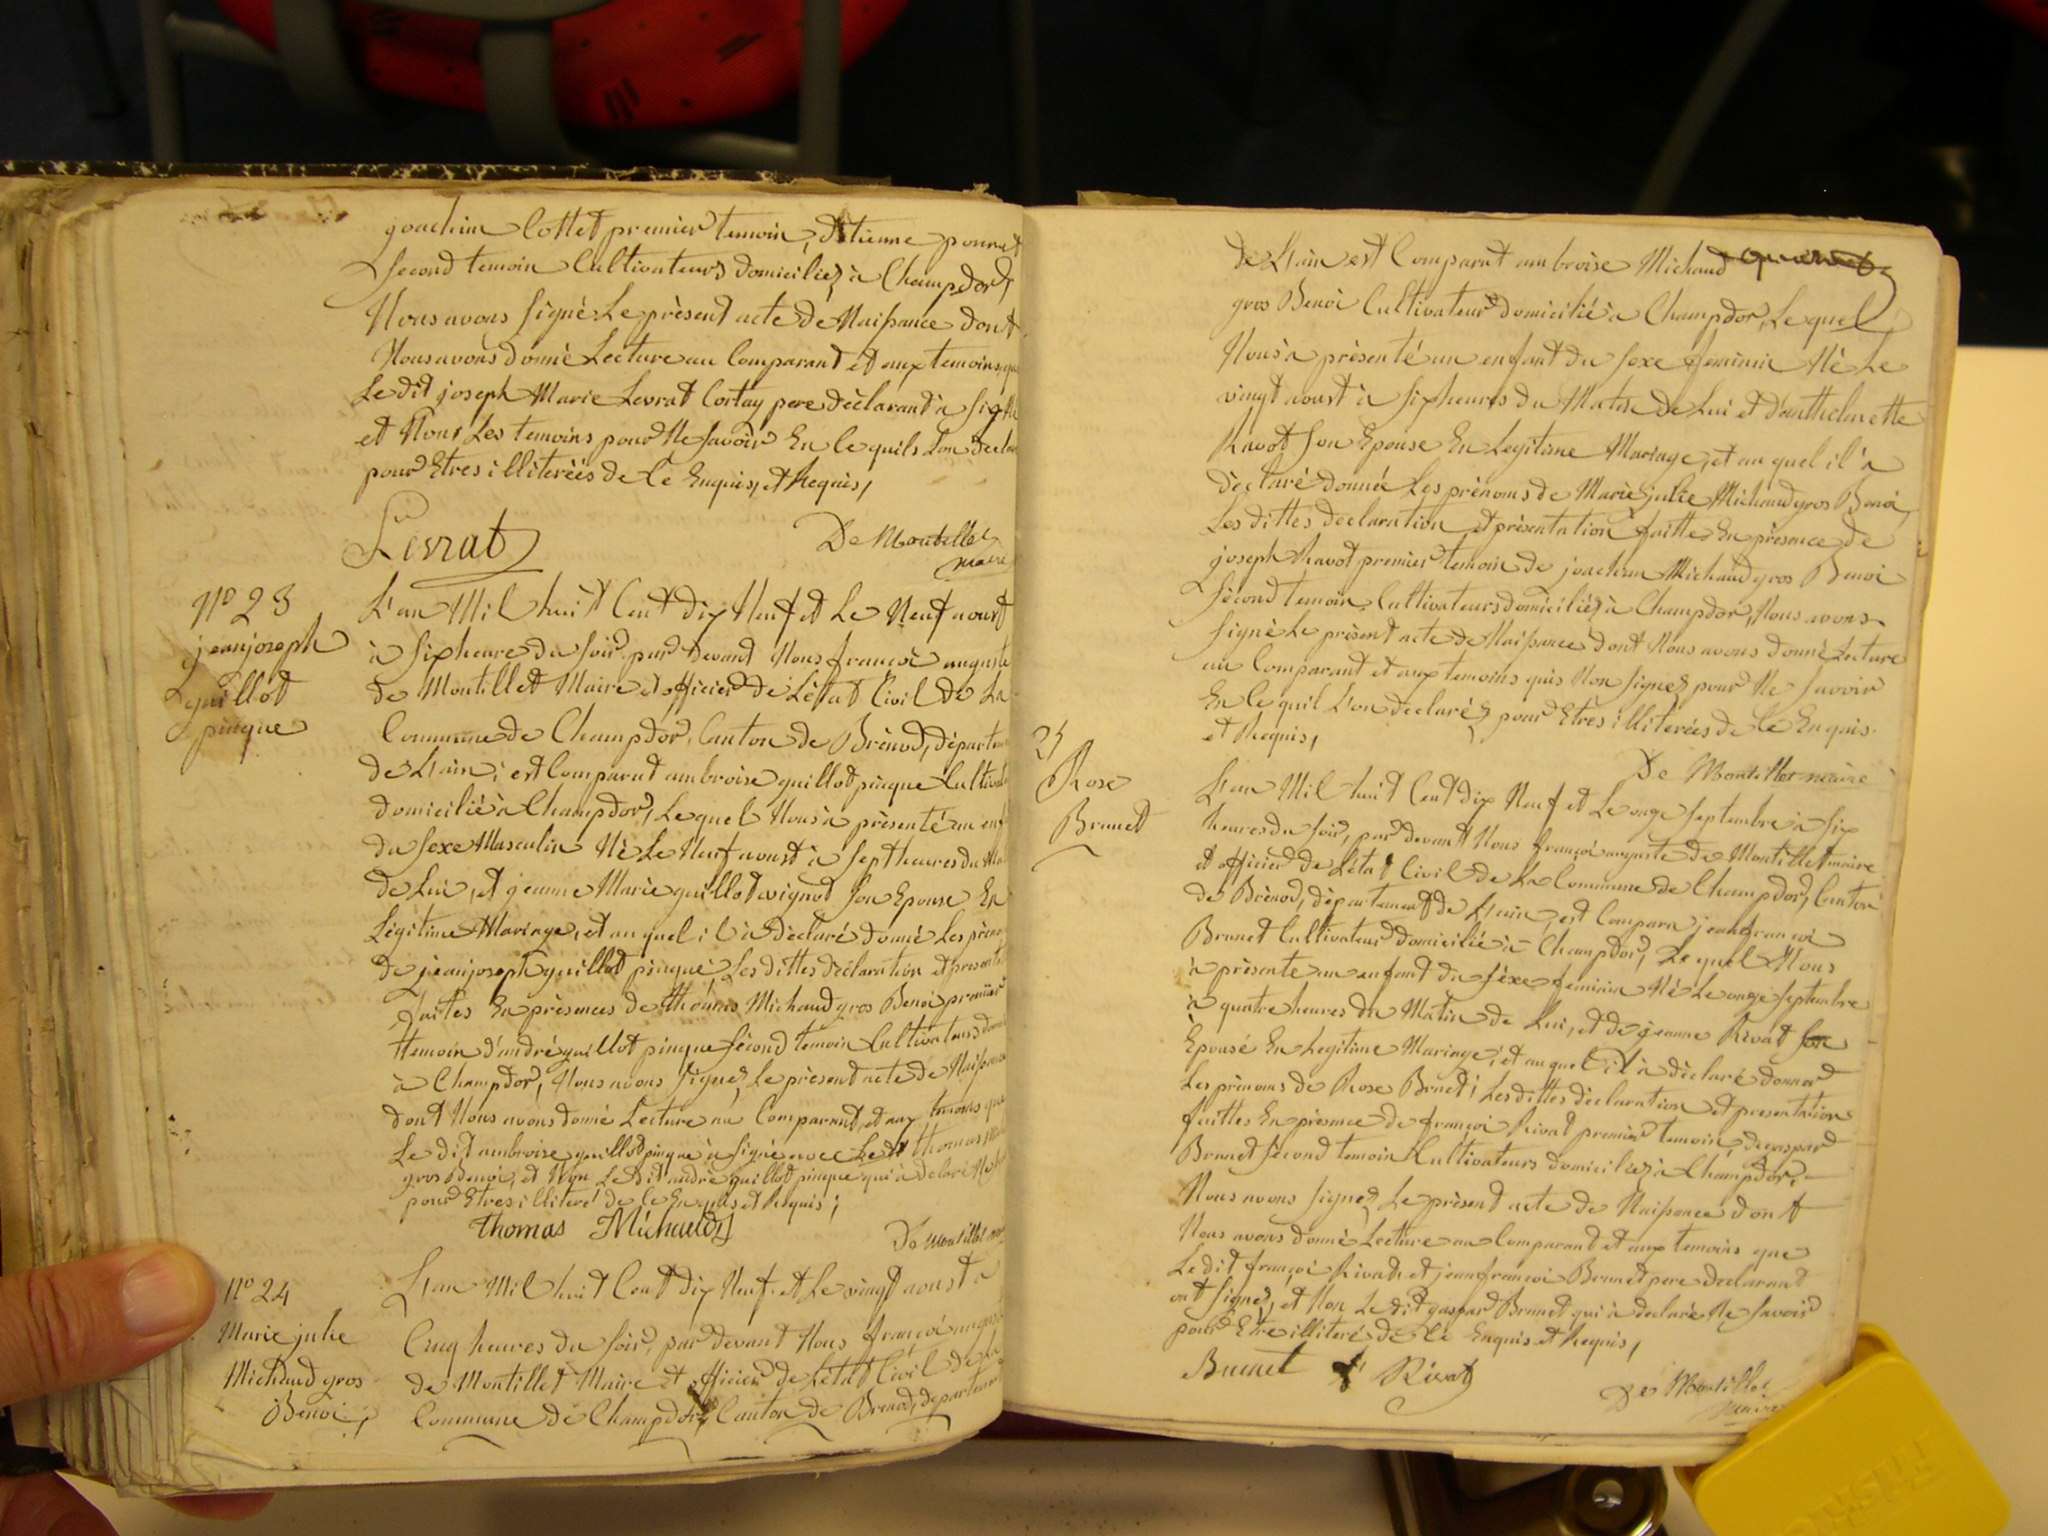 joachim Cottet premier temoin, d'Etienne ponnet
second temoin Cultivateurs domiciliez à Champdor,
Nous avons signé Le présent acte de Naissance dont
Nous avons donné Lecture au Comparant et aux temoins, que
Le dit joseph Marie Levrat Cortay pere déclarant à signé
et Non Les temoins pour Ne savoir En ce quils L'on declaré
pour Etres illiterées de Ce Enquis, et Requis,
Levrat
De Montillet
maire
N° 23
jean joseph
guillot
pinque
L'an Mil huit Cent dix Neuf et Le Neuf aoust
à six heure du soir par devant Nous françoi auguste
de Montillet Maire et officier de L'état Civil de La
Commune de Champdor, Canton de Brénod, départem
de L'ain, est Comparut ambroise guillot pinque Cultivat
domicilié à Champdor, Le quel Nous à présenté un enf
du sexe Masculin Né Le Neuf aoust à sept heures du Ma
de Lui, et jeanne Marie guillot vignot son Epouse En
Légitime Mariage, et au quel il à déclaré donné Les prén
de jean joseph guillot pinque Les dittes déclaration et presenta
faites En présences de thomas Michaud gros Benoi premier
temoin d'andré guillot pinque sécond temoin Cultivateurs domi
à Champdor, Nous avons signez Le présent acte de Naissance
dont Nous avons donné Lecture au Comparant, et aux temoins que
Le dit ambroise guillot pinque à signé avec Le dt thomas Mich
gros Benoi, et Non Le dit andré guillot pinque qui à déclaré Ne
pour Etres illiteré de Ce Enquis et Requis,
thomas Michaud
De Montillet
N° 24
Marie julie
Michaud gros
Benoi,
L'an Mil huit Cent dix Neuf et Le vingt aoust à
Cinq heures du soir, par devant Nous françoi auguste
de Montillet Maire et officier de L'état Civil de La
Commune de Champdor, Canton de Brenod, departement
de L'ain est Comparut ambroise Michaud
gros Benoi Cultivateur domicilié à Champdor, Le quel
Nous à présenté un enfant du sexe feminin Né Le
vingt aoust à six heures du Matin de Lui et d'anthelmette
Ravot son Epouse En Legitime Mariage, et au quel il à
déclaré donné Les prénoms de Marie julie Michaud gros Benoi,
Les dittes declaration et présentation faittes En présence de
joseph Ravot premier temoin de joachim Michaud gros Benoi
sécond temoin Cultivateurs domiciliez à Champdor, Nous avons
signé Le présent acte de Naissance dont Nous avons donné Lécture
au Comparant et aux temoins quis Non signez pour Ne savoir
En Ce quil L'on declaréz pour Etres illiterées de Ce Enquis
et Requis,
De Montillet maire
25
Rose
Brunet
L'an Mil huit Cent dix Neuf et Le onze septembre à six
heures du soir, par devant Nous françoi auguste de Montillet maire
et officier de L'état Civil de La Commune de Champdor, Canton
de Brénod, département de L'ain, est Compara jean françoi
Brunet Cultivateur domicilié à Champdor, Le quel Nous
à présenté un enfant du séxe feminin Né Le onze septembre
à quatre heures du Matin de Lui, et de jeanne Rivat son
Epousé En Legitime Mariage, et au quel il à déclaré donner
Les prénoms de Rose Brunet, Les dittes déclaration et présentation
faittes En présence de françoi Rivat premier temoin, de gaspar
Brunet sécond temoin Cultivateurs domiciliez à Champdor,
Nous avons signez Le présent acte de Naissance dont
Nous avons donné Lecture au Comparant et aux temoins que
Le dit françoi Rivat et jean françoi Brunet pere declarant
ont signez, et Non Le dit gaspar Brunet qui à declaré Ne savoir
pour Etre illiteré de Ce Enquis et Requis,
Brunet f Rivat
De Montillet
maire